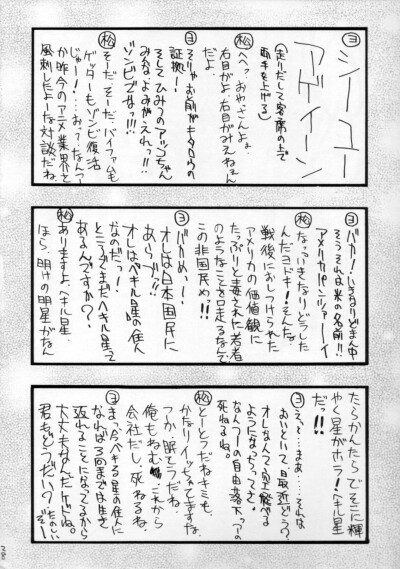 ヨ
シーユー
アゲイーン
(走りだして客席の上で
両手を上げる)
松 へへっ、おやっさんよォ、
右目がよ、右目がみえねェん
だよ
ヨ そりゃおまえがキタロウの
証拠!
そしてひみつのアッコちゃん
みんなよみがえれっ!!
ゾンビでなっ!!!
松 そーだそーだ、バイファムも
ゲッターもゾンビ復活
じゃー!
か昨今のアニメ業界を
風刺したよーな対談だね。
ヨ バカ!いきなりどまん中
そうそれは米の名前!!
アメリカパーンツァーイ
松 なっ、いきなりどうした
んだヨドキ!そんな。
戦後におしつけられた
アメリカの価値観に
たっぷりと毒された若者
のようなことを口走るなんて
この非国民め!!
ヨ バカめっ!
オレは日本国民に
あらず!!
オレはペキル星の住人
なのだっ!
ところでまだペキル星って
あるんですか?
松 ありますよ、ペキル星。
ほら、明けの明星がなん
たらかんたらでそこに輝
やく星がホラ!ペキル星
だっ!!
ヨ えっと…まあ…それは
おいといて、最近どう?
オレなんてもう空飛べる
ようになっちゃってさ。
なんつーの自由落下っつーの
死ねるね。
松 とーとつだねキミも。
かなりイッちゃってますな。
つか、眠そうだね。
俺もねむい。これから
会社だし、死ねるね。
ヨ まったくペキル星の住人に
なれば3回までは生き
返れることになってるから
大丈夫なんだケドね。
君もどうだい?たのしい
ぞー